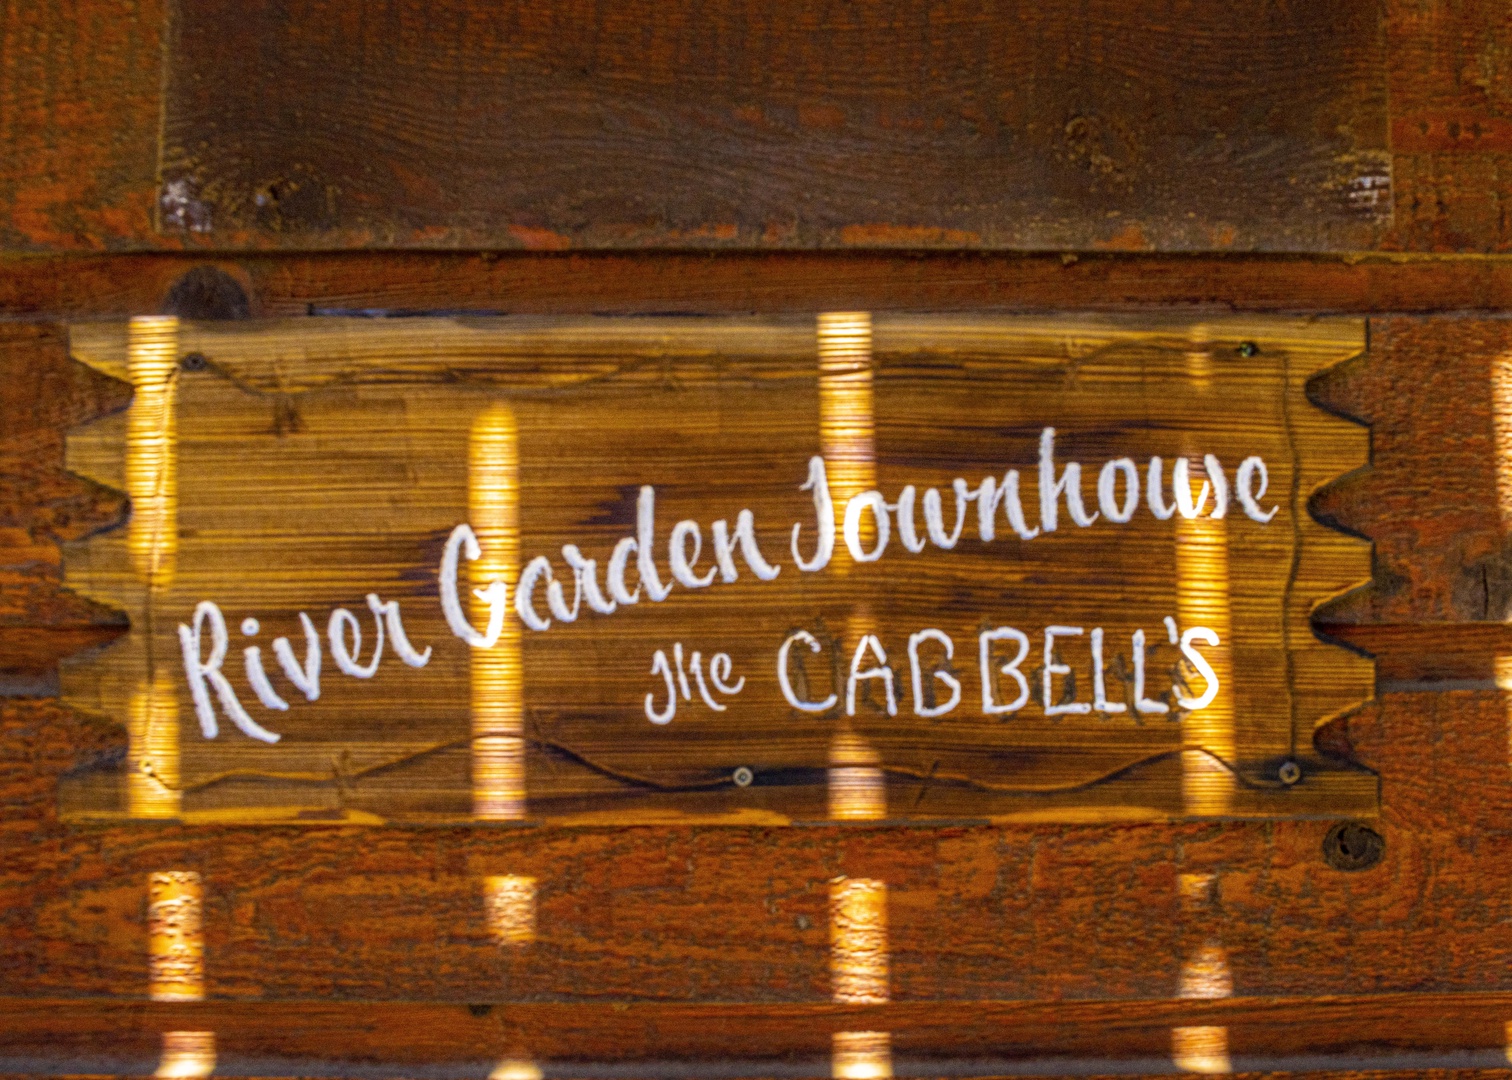 River Garden Townhouse
The CAGBELL'S